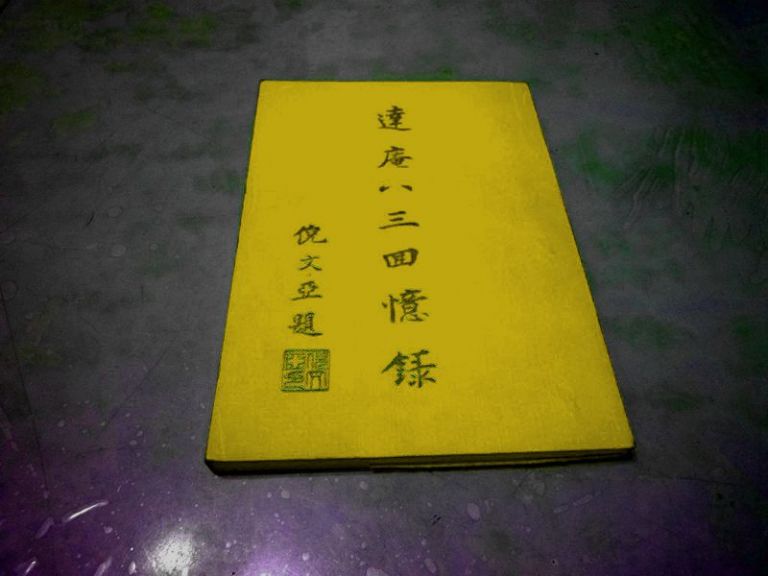 達庵八三回憶錄
倪文亞題